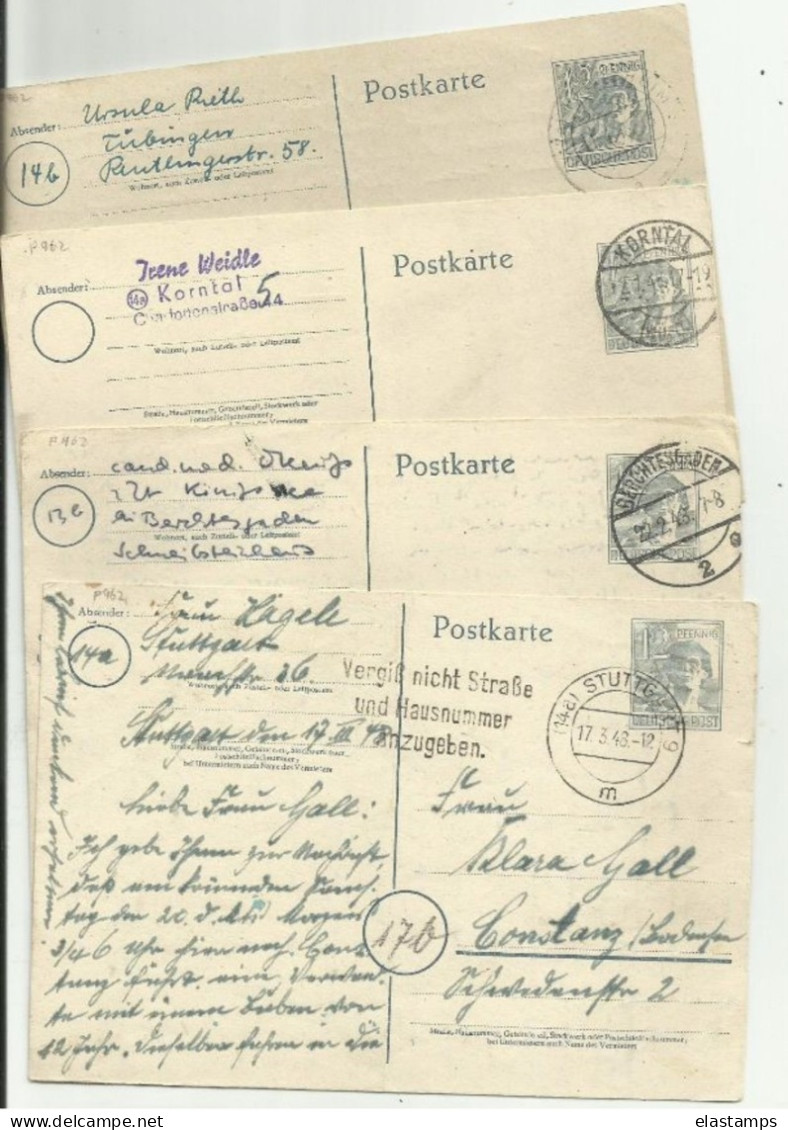 P962
Absender: Ursula Rieth
Tübingen
Reutlingerstr. 58.
14b
Wohnort, auch Zustell- oder Leitpostamt
Postkarte
12 PFENNIG
DEUTSCHE POST
P962
Absender:
Irene Weidle
14a Korntal
5
Wohnort, auch Zustell- oder Leitpostamt
Straße, Hausnummer, Gebäudeteil, Stockwerk oder
Postschließfachnummer;
Postkarte
KORNTAL
P962
Absender: cand. med.
13b
bei Berchtesgaden
Wohnort, auch Zustell- oder Leitpostamt
Postkarte
BERCHTESGADEN
22.2.48. 7-8
2 e
DEUTSCHE POST
P962
Absender: Frau Hägele
Stuttgart
14a
36.
Wohnort, auch Zustell- oder Leitpostamt
Stuttgart den 17 III 48
Straße, Hausnummer, Gebäudeteil, Stockwerk oder
Postschließfachnummer;
bei Untermietern auch Name des Vermieters
Postkarte
12 PFENNIG
DEUTSCHE POST
Vergiß nicht Straße
und Hausnummer
anzugeben.
(14a) STUTTGART 9
17.3.48.-12
m
Liebe Frau Gall:
Ich gebe Ihnen zur Nachricht,
daß am kommenden Sams-
tag den 20. d. Mts. Morgens
3/4 6 Uhr hier nach Cons-
tanz fährt eine Verwand-
te mit einem Buben von
12 Jahr. Dieselben fahren in die
Frau
Klara Gall
17b
Constanz /Bodensee
Schwedenstr. 2
Straße, Hausnummer, Gebäudeteil, Stockwerk oder Postschließfachnummer;
bei Untermietern auch Name des Vermieters
elastamps